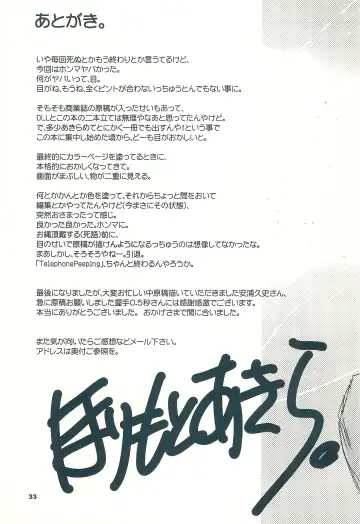 あとがき。
いや毎回死ぬとかもう終わりとか言うてるけど、
今回はホンマヤバかった。
何がヤバいって、目。
目がね、もうね、全くピントが合わないっちゅうとんでもない事に。
そもそも商業誌の原稿が入ったせいもあって、
DLLとこの本の二本立ては無理やなあと思ってたんやけど、
で、多少あきらめてとにかく一冊でも出すんや!という事で
この本に集中し始めた頃から、どーも目がおかしいと。
最終的にカラーページを塗ってるときに、
本格的におかしくなってきて。
画面がまぶしい、物が二重に見える。
何とかかんとか色を塗って、それからちょっと間をおいて
編集とかやってたんやけど(今まさにその状態)、
突然おさまったって感じ。
良かった良かった。ホンマに。
お縄頂戴する(死語)前に、
目のせいで原稿が描けんようになるっちゅうのは想像してなかったな。
まあしかし、そろそろやねー。引退。
「TelephonePeeping」、ちゃんと終わるんやろうか。
最後になりましたが、大変お忙しい中原稿描いていただきました安浦久史さん、
急に原稿お願いしました握手0.5秒さんには感謝感激でございます。
本当にありがとうございました。 おかげさまで間に合いました。
また気が向いたらご感想などメール下さい。
アドレスは奥付ご参照を。
ほりもとあきら。
33